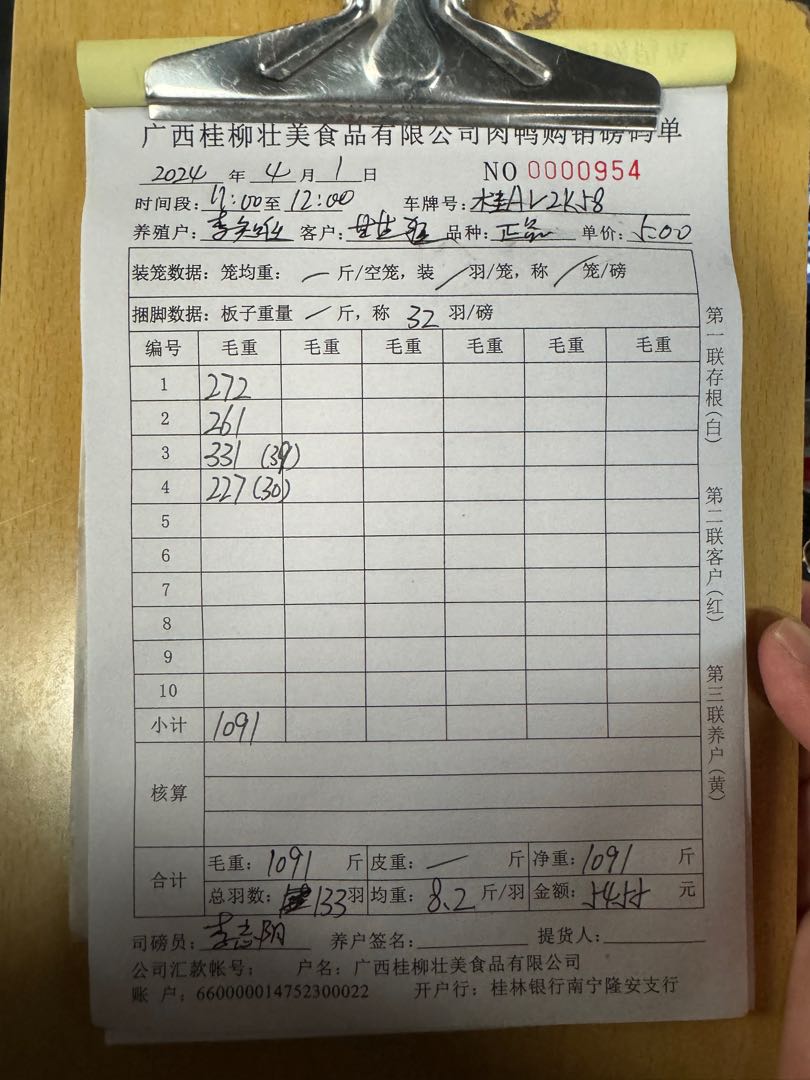 广西桂柳壮美食品有限公司肉鸭购销磅码单
2024 年 4 月 1 日 NO 0000954
时间段: :00至12:00 车牌号: 桂AV2K58
养殖户: 客户: 品种: 正品 单价: 5.00
装笼数据: 笼均重: — 斤/空笼, 装 / 羽/笼, 称 / 笼/磅
捆脚数据: 板子重量 — 斤, 称 32 羽/磅
编号 毛重 毛重 毛重 毛重 毛重 毛重
1 272
2 261
3 331 (39)
4 227(30)
5
6
7
8
9
10
小计 1091
核算
合计 毛重: 1091 斤 皮重: — 斤 净重: 1091 斤
总羽数: 133羽 均重: 8.2 斤/羽 金额: 5455 元
司磅员: 李志阳 养户签名: 提货人:
公司汇款帐号; 户名: 广西桂柳壮美食品有限公司
账 户: 660000014752300022 开户行: 桂林银行南宁隆安支行
第一联存根(白)
第二联客户(红)
第三联养户(黄)